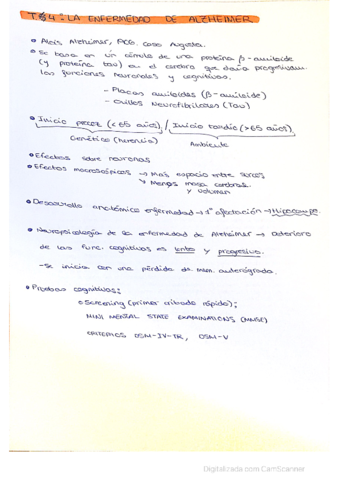 T64: LA ENFERMEDAD DE ALZHEIMER
• Alois Alzheimer, caso Augusta.
• Se basa en un cúmulo de una proteína β-amiloide
(y proteína tau) en el cerebro que daña progresivam.
las funciones neuronales y cognitivas.
- Placas amiloides (β-amiloide)
- Ovillos Neurofibrilares (Tau)
• Inicio precoz (<65 años) / Inicio tardío (>65 años)
Genético (herencia) Ambiente
• Efectos sobre neuronas
• Efectos macroscópicos → Más espacio entre surcos
↳ Menos masa cerebral
y volumen
• Desarrollo anatómico enfermedad → 1ª afectación → Hipocampo
• Neuropsicología de la enfermedad de Alzheimer → deterioro
de las func. cognitivas es lento y progresivo.
- Se inicia con una pérdida de mem. anterógrada.
• Pruebas cognitivas:
• Screening (primer cribado rápido):
MINI MENTAL STATE EXAMINATIONS (MMSE)
CRITERIOS DSM-IV-TR, DSM-V
Digitalizado con CamScanner